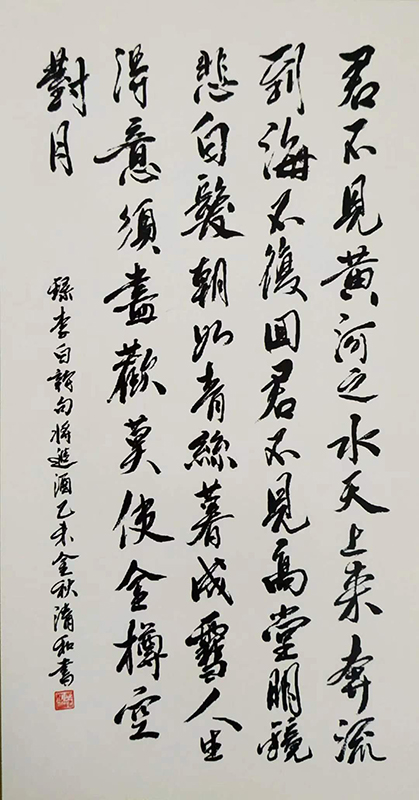 君不見黃河之水天上來奔流
到海不復回君不見高堂明鏡
悲白髮朝如青絲暮成雪人生
得意須盡歡莫使金樽空
對月
錄李白詩句將進酒乙未金秋清和書